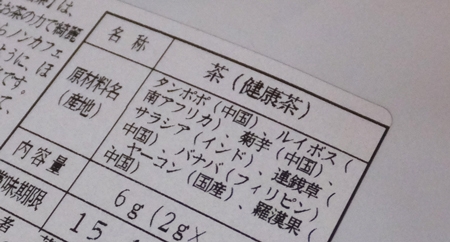 茶」は、
お茶の力で綺麗
らノンカフェ
ように、ほ
です。
て、
名称
茶(健康茶)
原材料名
(産地)
タンポポ(中国)、ルイボス(
南アフリカ)、菊芋(中国)、
サラシア(インド)、連銭草(
中国)、バナバ(フィリピン)
、ヤーコン(国産)、羅漢果(
中国)
内容量
6g(2g×
賞味期限
15.4
者